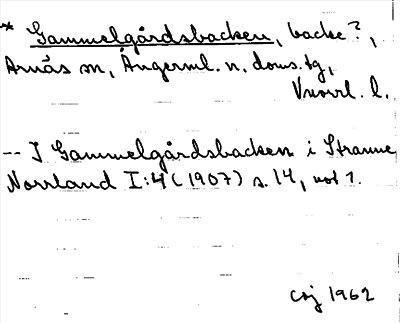 * Gammelgårdsbacken, backe?,
Arnäs sn, Ångerml. n. doms.tg,
Vnorrl. l.
-- I Gammelgårdsbacken i Stranne
Norrland I:4 (1907) s. 14, not 1.
CSJ 1962